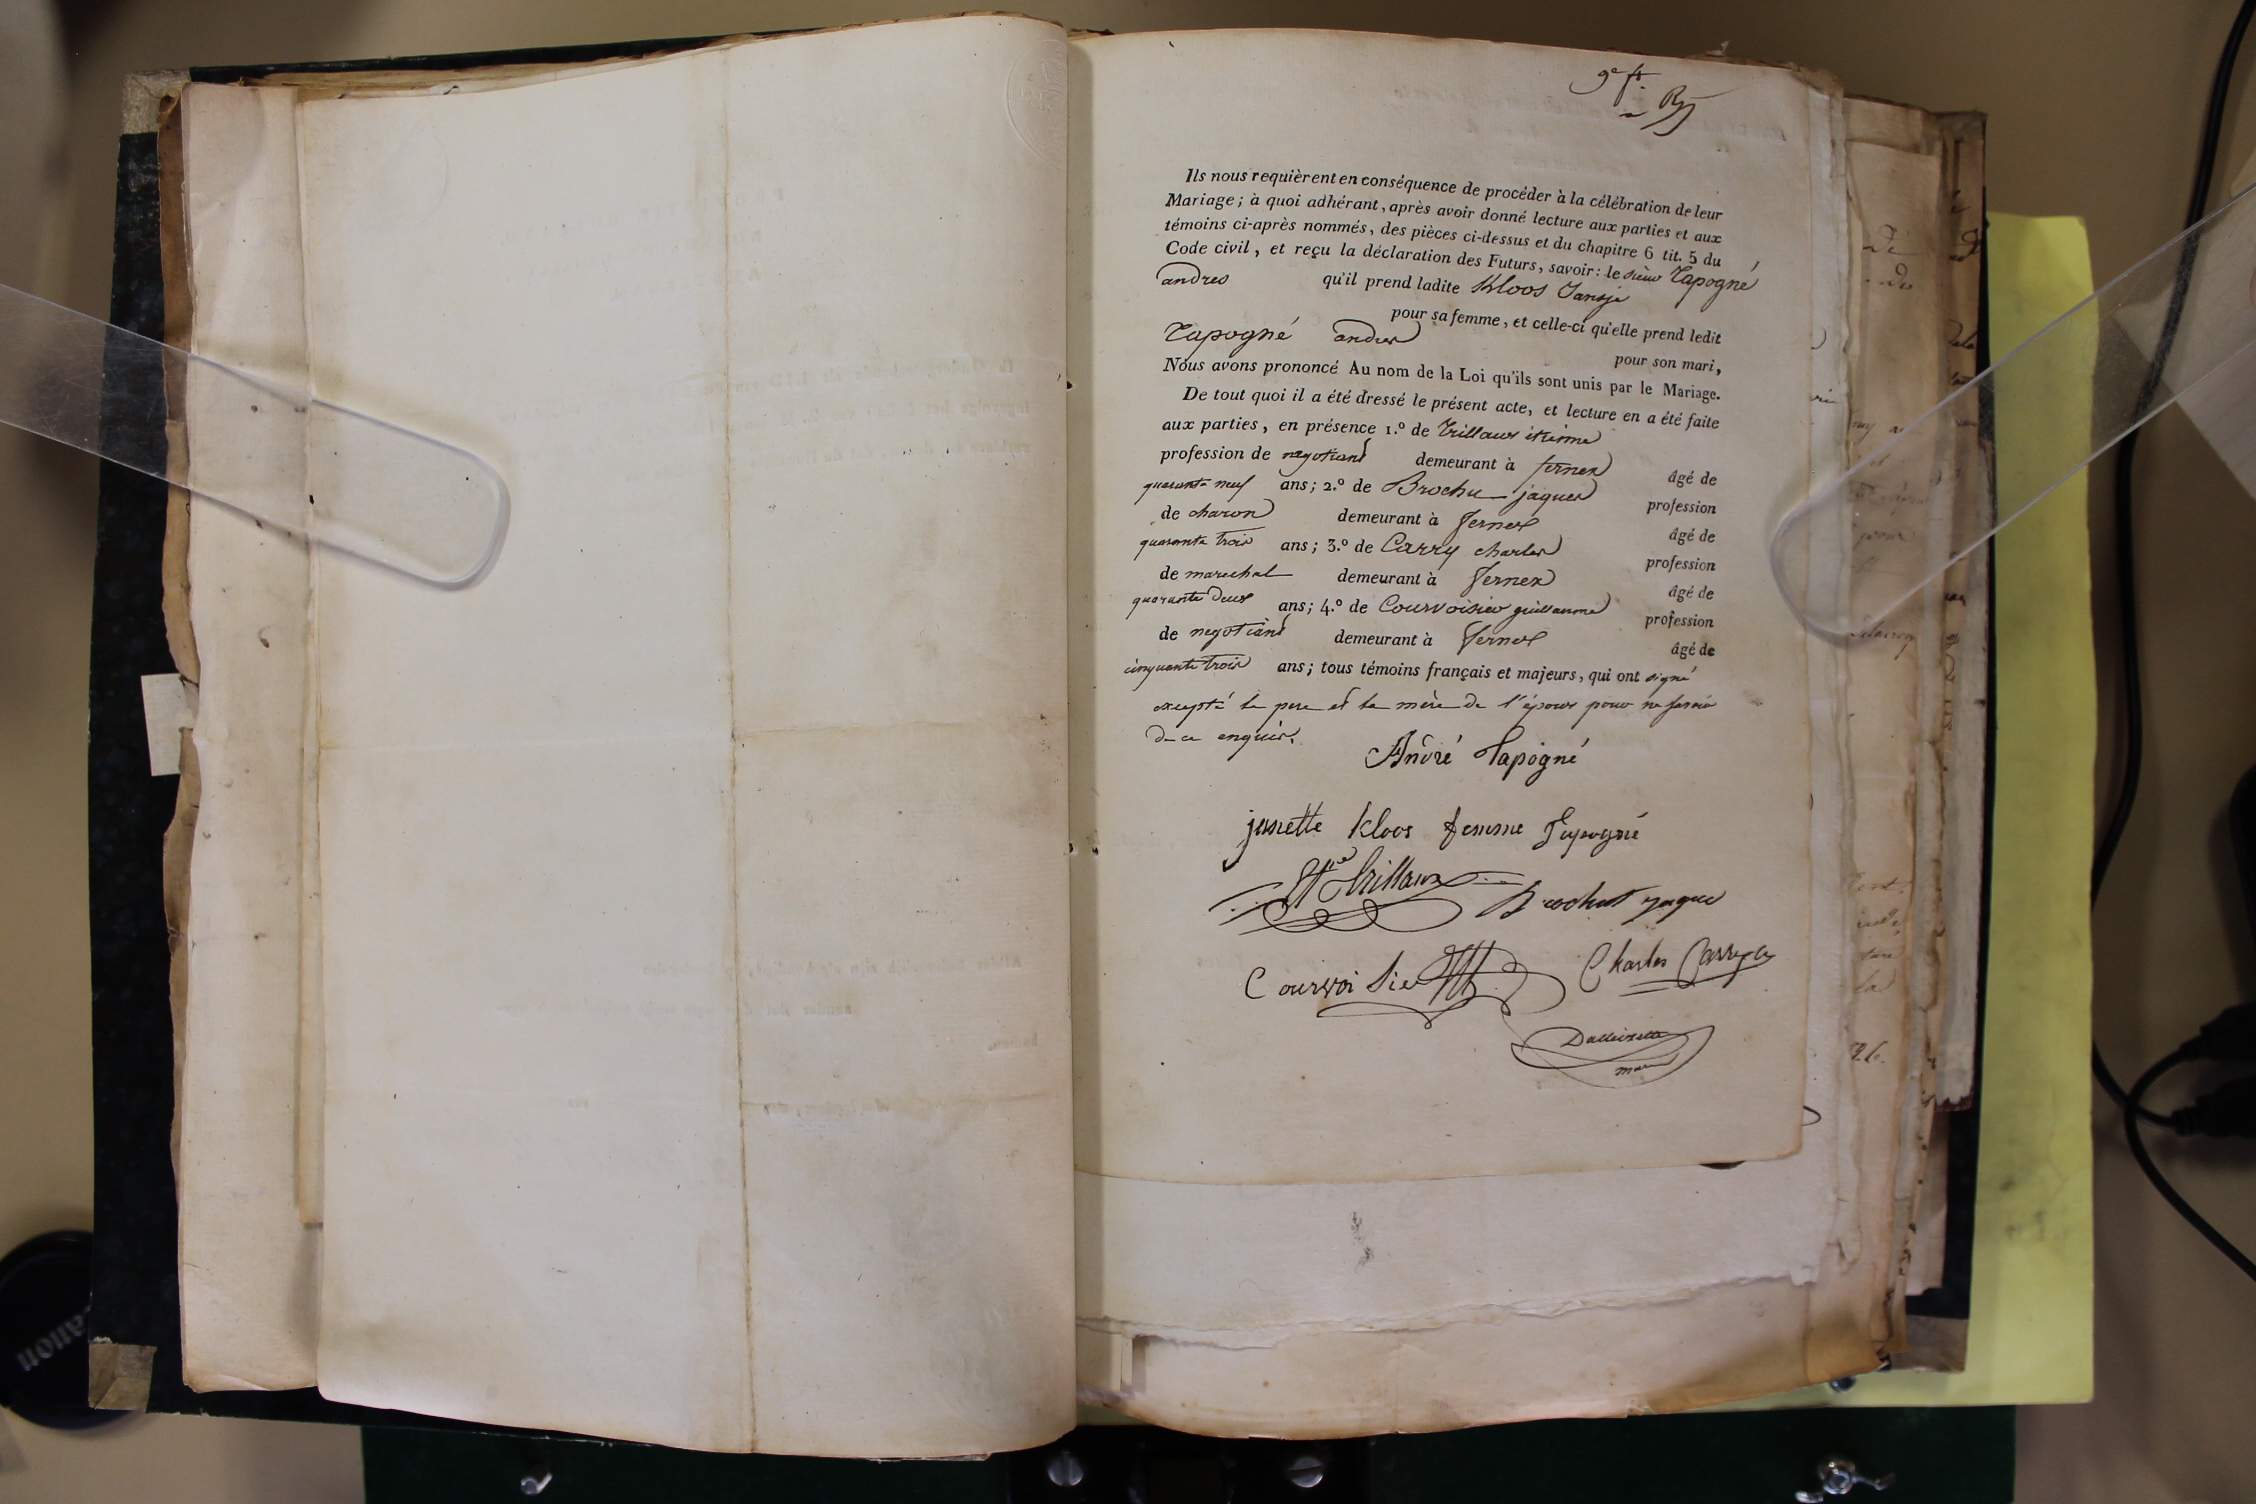 9e ft.
Ils nous requièrent en conséquence de procéder à la célébration de leur
Mariage ; à quoi adhérant, après avoir donné lecture aux parties et aux
témoins ci-après nommés, des pièces ci-dessus et du chapitre 6 tit. 5 du
Code civil, et reçu la déclaration des Futurs, savoir : le sieur Tapogné
andres qu'il prend ladite Kloos Jansje
pour sa femme, et celle-ci qu'elle prend ledit
Tapogné andres pour son mari,
Nous avons prononcé Au nom de la Loi qu'ils sont unis par le Mariage.
De tout quoi il a été dressé le présent acte, et lecture en a été faite
aux parties, en présence 1.º de Trillaux etienne
profession de negotiant demeurant à fernex âgé de
quarante neuf ans ; 2.º de Brochu jaques profession
de charon demeurant à fernex âgé de
quarante trois ans ; 3.º de Carry charles profession
de marechal demeurant à fernex âgé de
quarante deux ans ; 4.º de Courvoisier guillaume profession
de negotiant demeurant à fernex âgé de
cinquante trois ans ; tous témoins français et majeurs, qui ont signé
excepté le pere et la mère de l'époux pour ne savoir
de ce enquis.
André Tapogné
janette kloos femme Tapogné
Et.ne Trillaux
Brochut jaque
Courvoisier
Charles Carry
maire
Canon